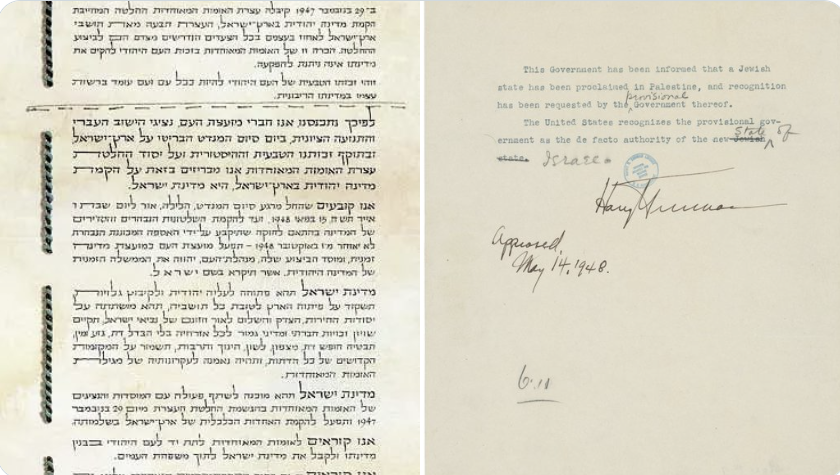 ב־29 בנובמבר 1947 קיבלה עצרת האומות המאוחדות החלטה המחייבת
הקמת מדינה יהודית בארץ־ישראל, העצרת תבעה מאת תושבי
ארץ־ישראל לאחוז בעצמם בכל הצעדים הנדרשים מצדם הם לביצוע
ההחלטה. הכרה זו של האומות המאוחדות בזכות העם היהודי להקים את
מדינתו אינה ניתנת להפקעה.
זוהי זכותו הטבעית של העם היהודי להיות ככל עם ועם עומד ברשות
עצמו במדינתו הריבונית.
לפיכך נתכנסנו, אנו חברי מועצת העם, נציגי הישוב העברי
והתנועה הציונית, ביום סיום המנדט הבריטי על ארץ־ישראל
ובתוקף זכותנו הטבעית וההיסטורית ועל יסוד החלטת
עצרת האומות המאוחדות אנו מכריזים בזאת על הקמת
מדינה יהודית בארץ־ישראל, היא מדינת ישראל.
אנו קובעים שהחל מרגע סיום המנדט, הלילה, אור ליום שבת ו
אייר תש״ח, 15 במאי 1948, ועד להקמת השלטונות הנבחרים והסדירים
של המדינה בהתאם לחוקה שתיקבע על־ידי האספה המכוננת הנבחרת
לא יאוחר מ־1 באוקטובר 1948 – תפעל מועצת העם כמועצת מדינה
זמנית, ומוסד הביצוע שלה, מנהלת־העם, יהווה את הממשלה הזמנית
של המדינה היהודית, אשר תיקרא בשם ישראל.
מדינת ישראל תהא פתוחה לעליה יהודית ולקיבוץ גלויות,
תשקוד על פיתוח הארץ לטובת כל תושביה, תהא מושתתה על
יסודות החירות, הצדק והשלום לאור חזונם של נביאי ישראל, תקיים
שויון זכויות חברתי ומדיני גמור לכל אזרחיה בלי הבדל דת, גזע ומין,
תבטיח חופש דת, מצפון, לשון, חינוך ותרבות, תשמור על המקומות
הקדושים של כל הדתות, ותהיה נאמנה לעקרונותיה של מגילת
האומות המאוחדות.
מדינת ישראל תהא מוכנה לשתף פעולה עם המוסדות והנציגים
של האומות המאוחדות בהגשמת החלטת העצרת מיום 29 בנובמבר
1947 ותפעל להקמת האחדות הכלכלית של ארץ־ישראל בשלמותה.
אנו קוראים לאומות המאוחדות לתת יד לעם היהודי בבנין
מדינתו ולקבל את מדינת ישראל לתוך משפחת העמים.
אנו קוראים
This Government has been informed that a Jewish
state has been proclaimed in Palestine, and recognition
has been requested by the provisional Government thereof.
The United States recognizes the provisional gov-
ernment as the de facto authority of the new Jewish State of
state. Israel.
Harry Truman
Approved,
May 14, 1948.
6.11